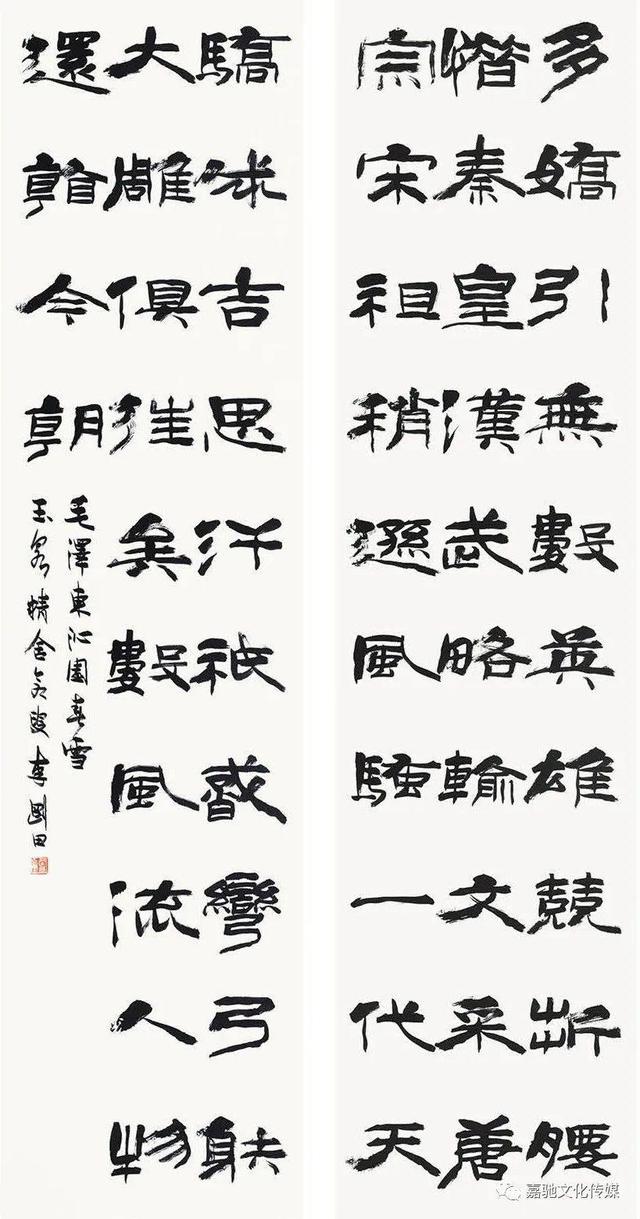 多嬌引無數英雄競折腰
惜秦皇漢武略輸文采唐
宗宋祖稍遜風騷一代天
驕成吉思汗祇識彎弓射
大雕俱往矣數風流人物
還看今朝
毛澤東沁園春雪
精舍李剛田
嘉驰文化传媒